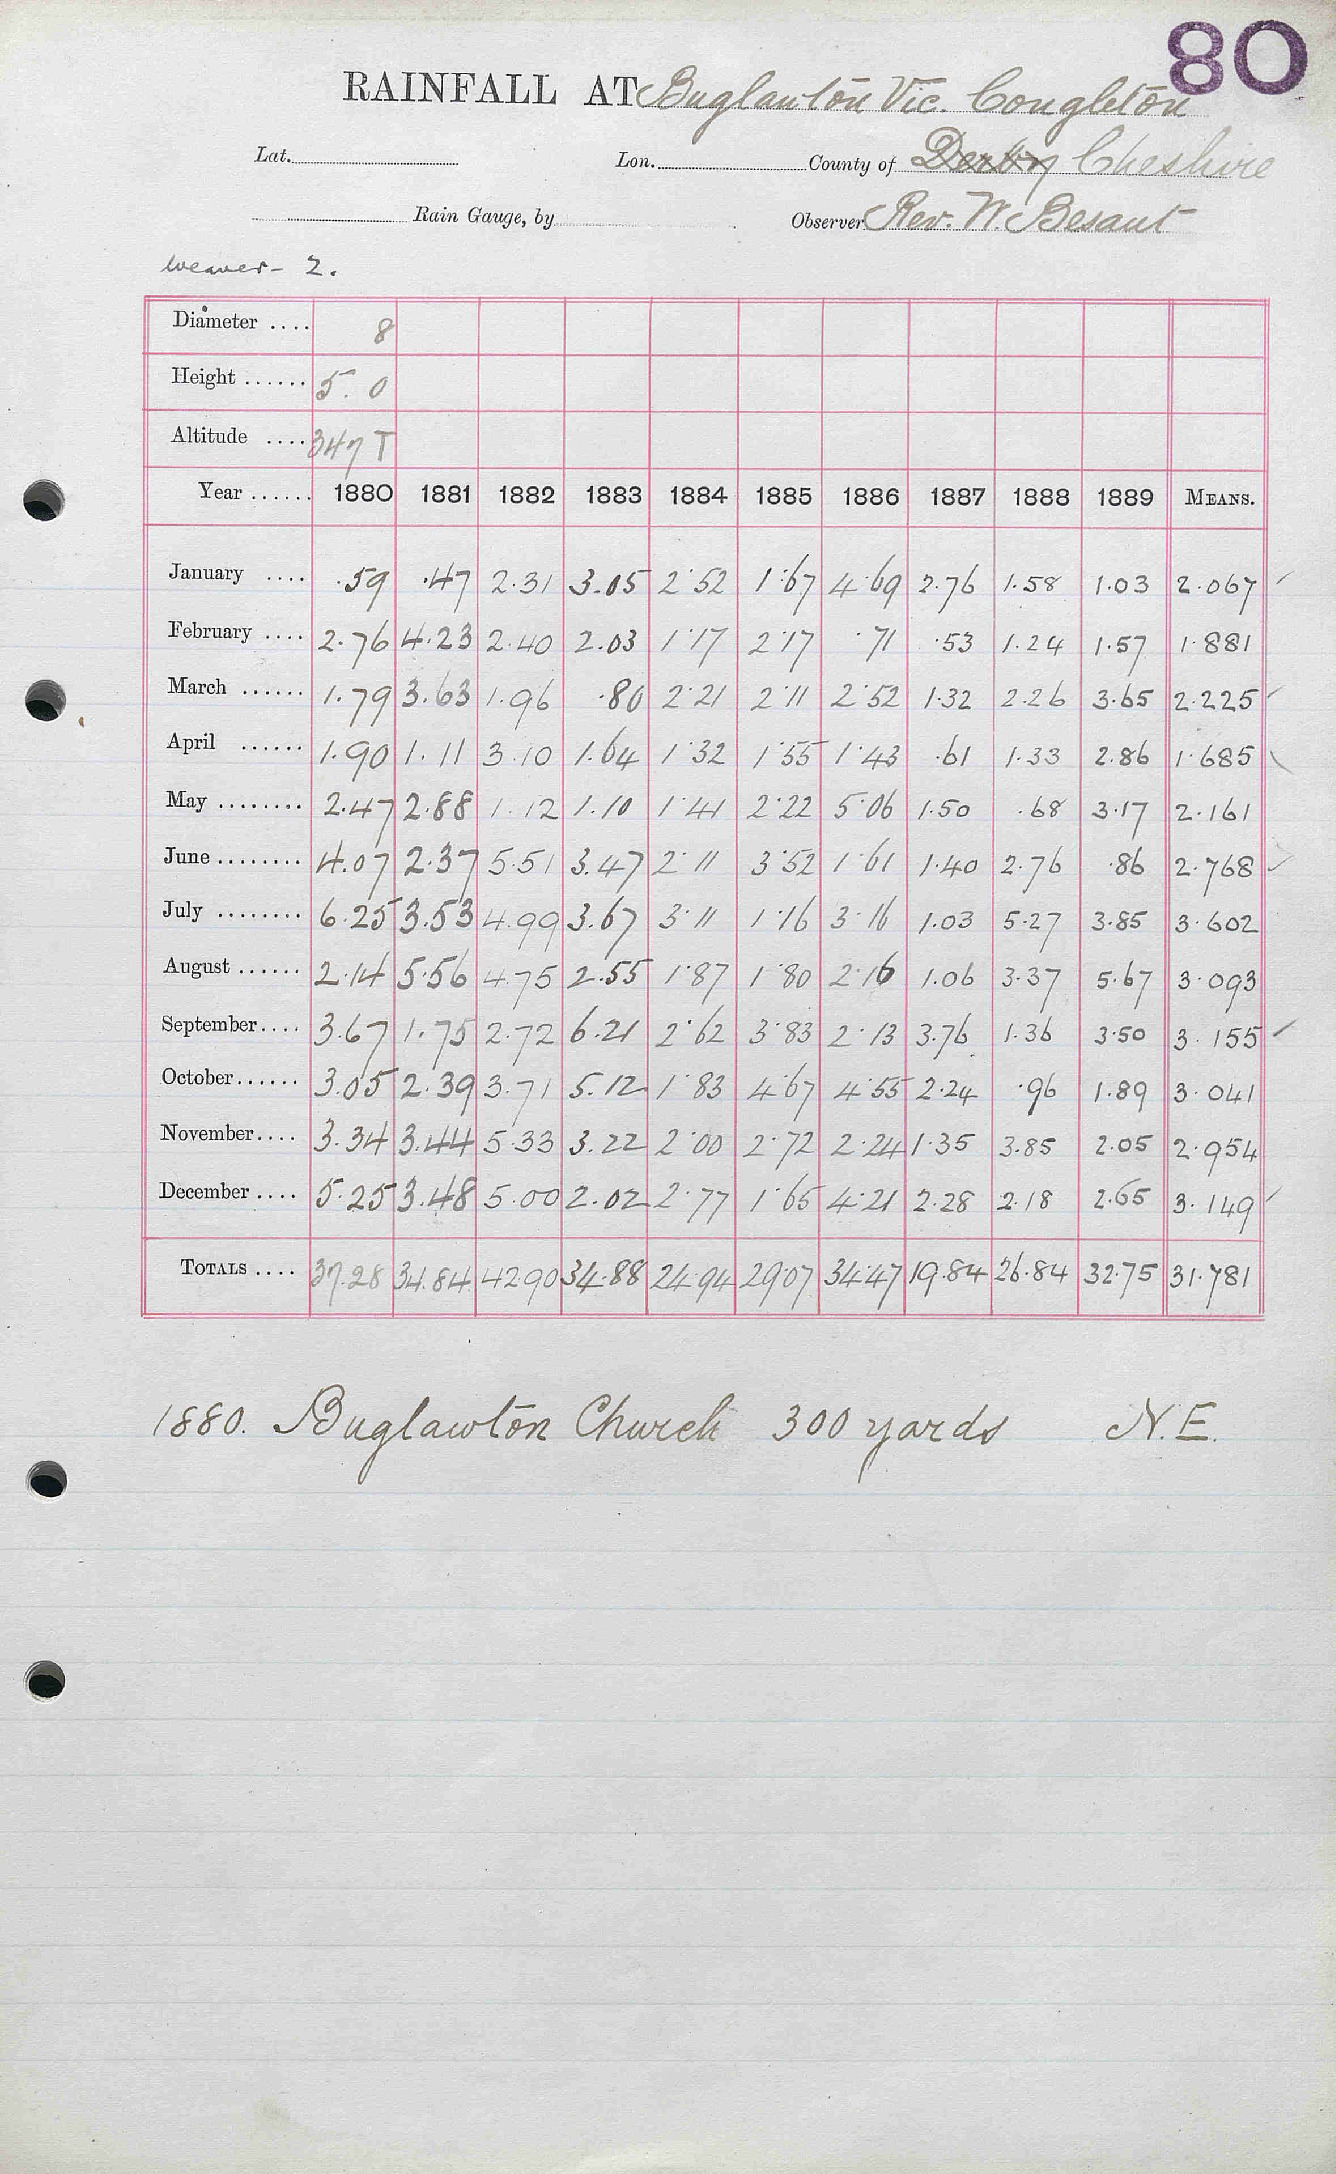 80
RAINFALL AT Buglawton Vic. Congleton
Lat. Lon. County of Derby Cheshire
Rain Gauge, by Observer Rev. W. Besant
Weaver - 2.
Diameter .... 8
Height ...... 5. 0
Altitude .... 347 T
Year ...... 1880 1881 1882 1883 1884 1885 1886 1887 1888 1889 MEANS.
January .... .59 .47 2.31 3.05 2.52 1.67 4.69 2.76 1.58 1.03 2.067
February .... 2.76 4.23 2.40 2.03 1.17 2.17 .71 .53 1.24 1.57 1.881
March ...... 1.79 3.63 1.96 .80 2.21 2.11 2.52 1.32 2.26 3.65 2.225
April ...... 1.90 1.11 3.10 1.64 1.32 1.55 1.43 .61 1.33 2.86 1.685
May ........ 2.47 2.88 1.12 1.10 1.41 2.22 5.06 1.50 .68 3.17 2.161
June ........ 4.07 2.37 5.51 3.47 2.11 3.52 1.61 1.40 2.76 .86 2.768
July ........ 6.25 3.53 4.99 3.67 3.11 1.16 3.16 1.03 5.27 3.85 3.602
August ...... 2.14 5.56 4.75 2.55 1.87 1.80 2.16 1.06 3.37 5.67 3.093
September.... 3.67 1.75 2.72 6.21 2.62 3.83 2.13 3.76 1.36 3.50 3.155
October...... 3.05 2.39 3.71 5.12 1.83 4.67 4.55 2.24 .96 1.89 3.041
November.... 3.34 3.44 5.33 3.22 2.00 2.72 2.24 1.35 3.85 2.05 2.954
December .... 5.25 3.48 5.00 2.02 2.77 1.65 4.21 2.28 2.18 2.65 3.149
TOTALS .... 37.28 34.84 42.90 34.88 24.94 29.07 34.47 19.84 26.84 32.75 31.781
1880. Buglawton Church 300 yards N.E.